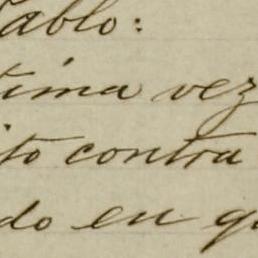 ablo:
tima vez
ito contra
do en q